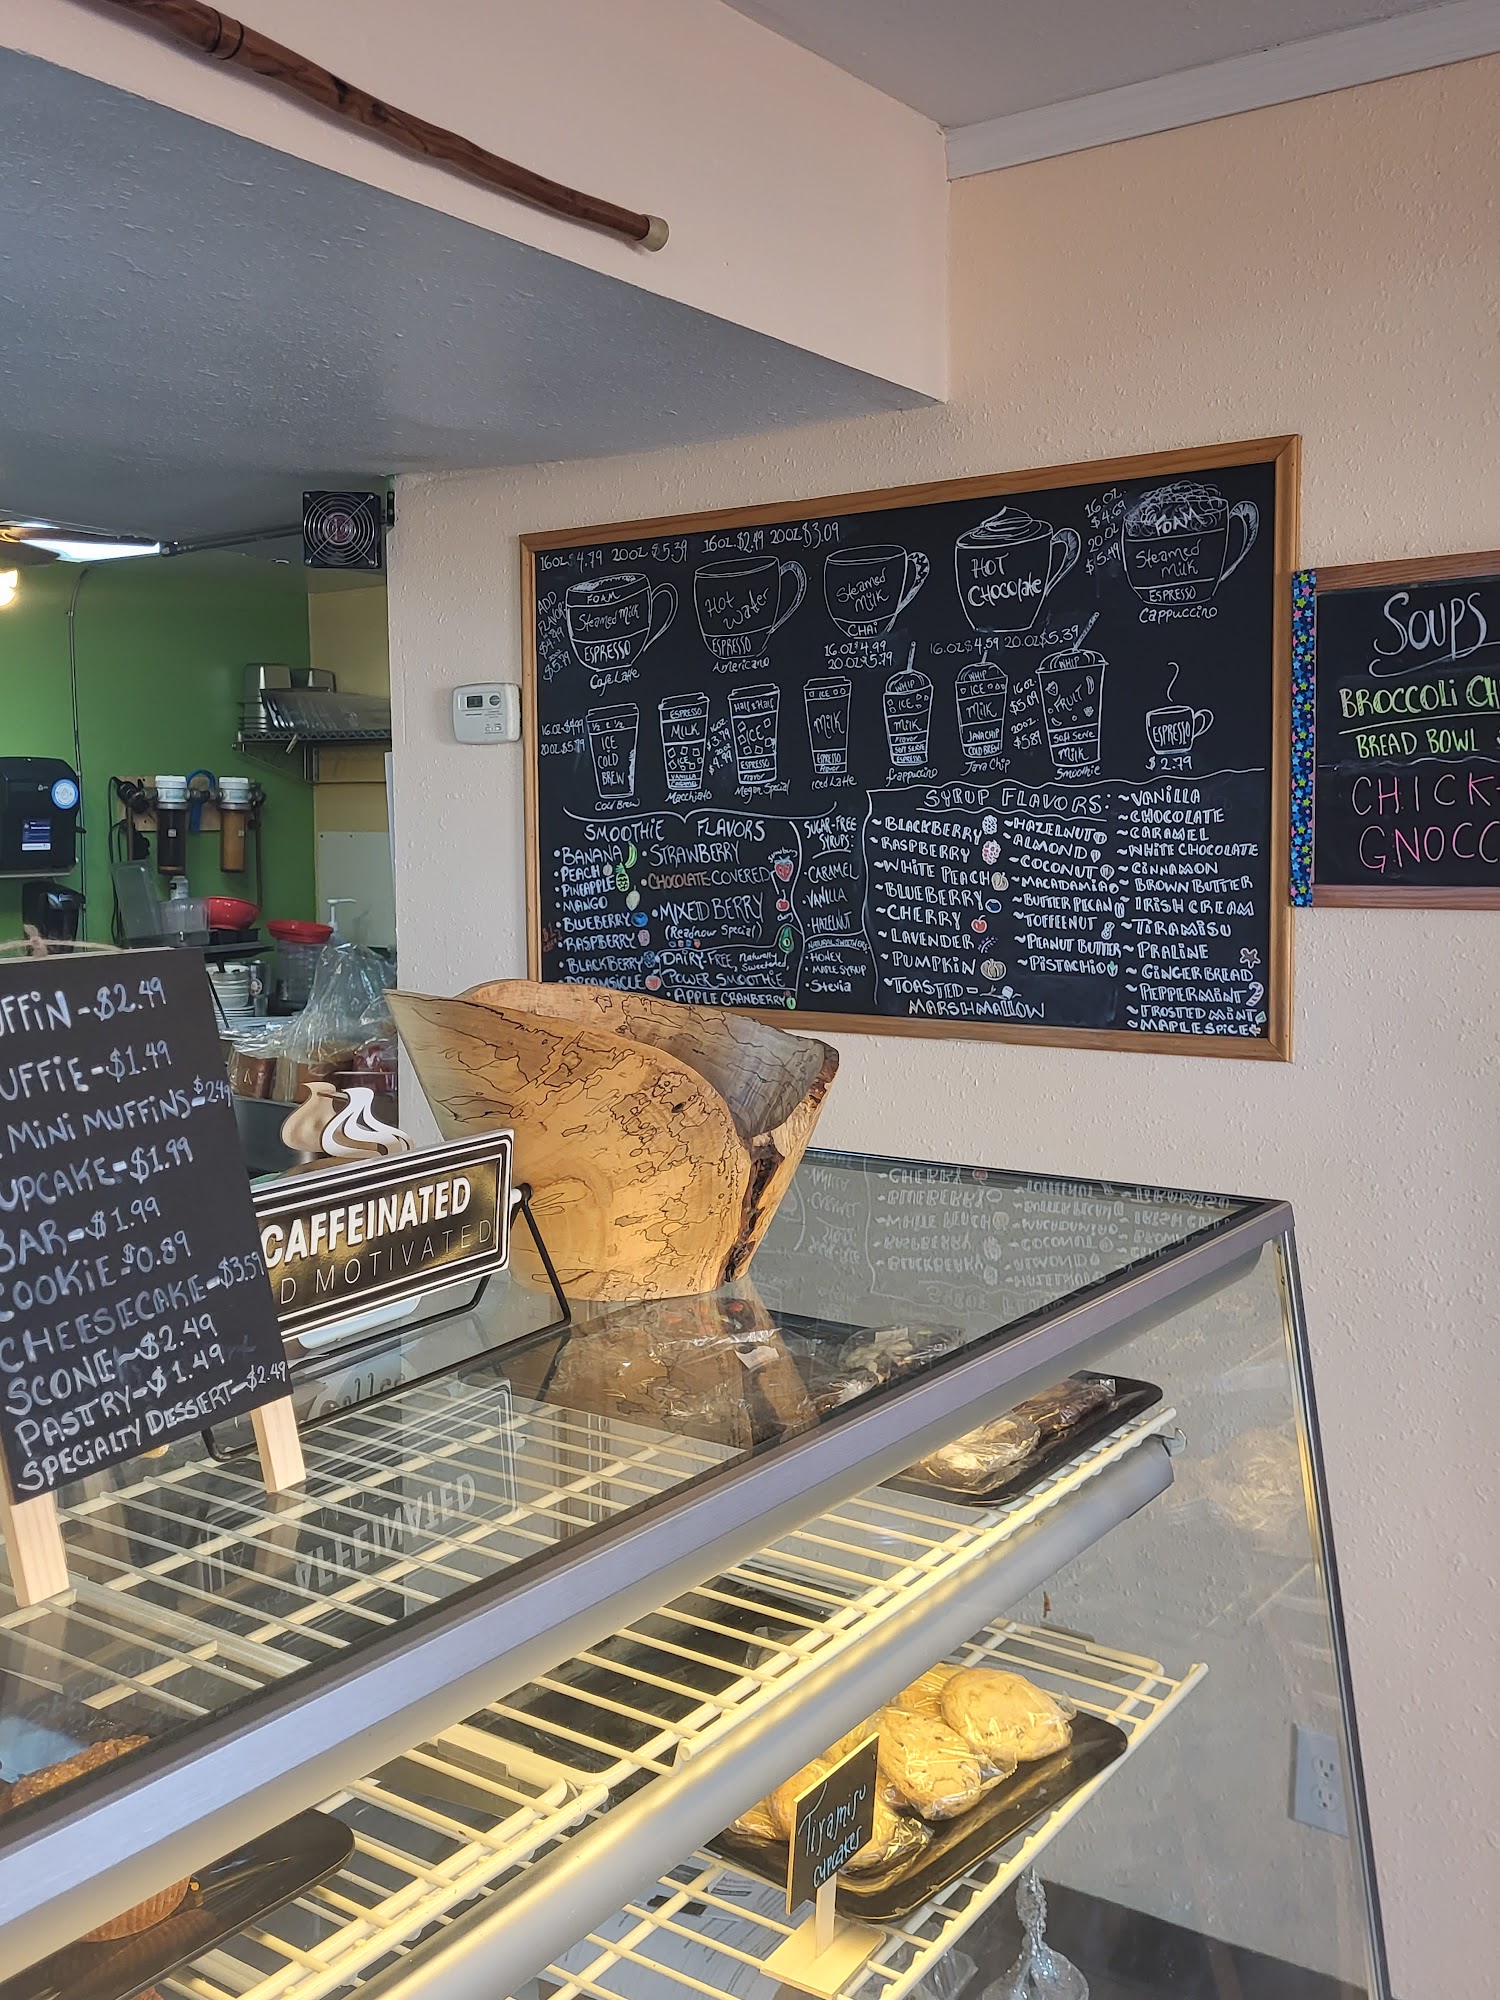 16oz. $4.79 20oz $5.39
16oz. $2.49 20oz $3.09
ADD
FLAVOR
FOAM
Steamed Milk
ESPRESSO
Cafe Latte
Hot
Water
ESPRESSO
Americano
Steamed
Milk
CHAI
16.oz $4.99
20oz $5.79
HOT
CHOCOLATE
16.oz $4.59 20.oz $5.39
16.oz.
$4.69
20.oz
$5.49
FOAM
Steamed
Milk
ESPRESSO
Cappuccino
20oz $5.79
½ & ½
ICE
COLD
BREW
Cold Brew
ESPRESSO
MILK
ICE
VANILLA
CARAMEL
Macchiato
Half & Half
ICE
ESPRESSO
Flavor
Megan Special
ICE
Milk
ESPRESSO
Flavor
Iced Latte
WHIP
ICE
MILK
Flavor
SOFT SERVE
ESPRESSO
frappuccino
WHIP
ICE
Milk
JAVA CHIP
COLD BREW
Java Chip
16oz
$5.09
20oz.
$5.89
WHIP
FRUIT
Soft Serve
Milk
Smoothie
ESPRESSO
$2.79
SMOOTHIE FLAVORS
•BANANA
•PEACH
•PINEAPPLE
•MANGO
•BLUEBERRY
•RASPBERRY
•BLACKBERRY
•STRAWBERRY
•CHOCOLATE COVERED
•MIXED BERRY
(Readnow Special)
DAIRY-FREE, Naturally Sweetened,
POWER SMOOTHIE
•APPLE CRANBERRY
SUGAR-FREE
SYRUPS:
•CARAMEL
•VANILLA
•HAZELNUT
NATURAL SWEETNERS
•HONEY
•MAPLE SYRUP
•Stevia
SYRUP FLAVORS:
~BLACKBERRY
~RASPBERRY
~WHITE PEACH
~BLUEBERRY
~CHERRY
~LAVENDER
~PUMPKIN
~TOASTED-
MARSHMALLOW
~HAZELNUT
~ALMOND
~COCONUT
~MACADAMIA
~BUTTER PECAN
~TOFFEENUT
~PEANUT BUTTER
~PISTACHIO
~VANILLA
~CHOCOLATE
~CARAMEL
~WHITE CHOCOLATE
~CINNAMON
~BROWN BUTTER
~IRISH CREAM
~TIRAMISU
~PRALINE
~GINGERBREAD
~PEPPERMINT
~FROSTED MINT
~MAPLE SPICE
SOUPS
BROCCOLI CH
BREAD BOWL
CHICK-
GNOCC
FFIN-$2.49
UFFIE-$1.49
MINI MUFFINS-$2.49
UPCAKE-$1.99
BAR-$1.99
COOKIE-$0.89
CHEESECAKE-$3.59
SCONE-$2.49
PASTRY-$1.49
SPECIALTY DESSERT-$2.49
CAFFEINATED
D MOTIVATED
Tiramisu
cupcakes